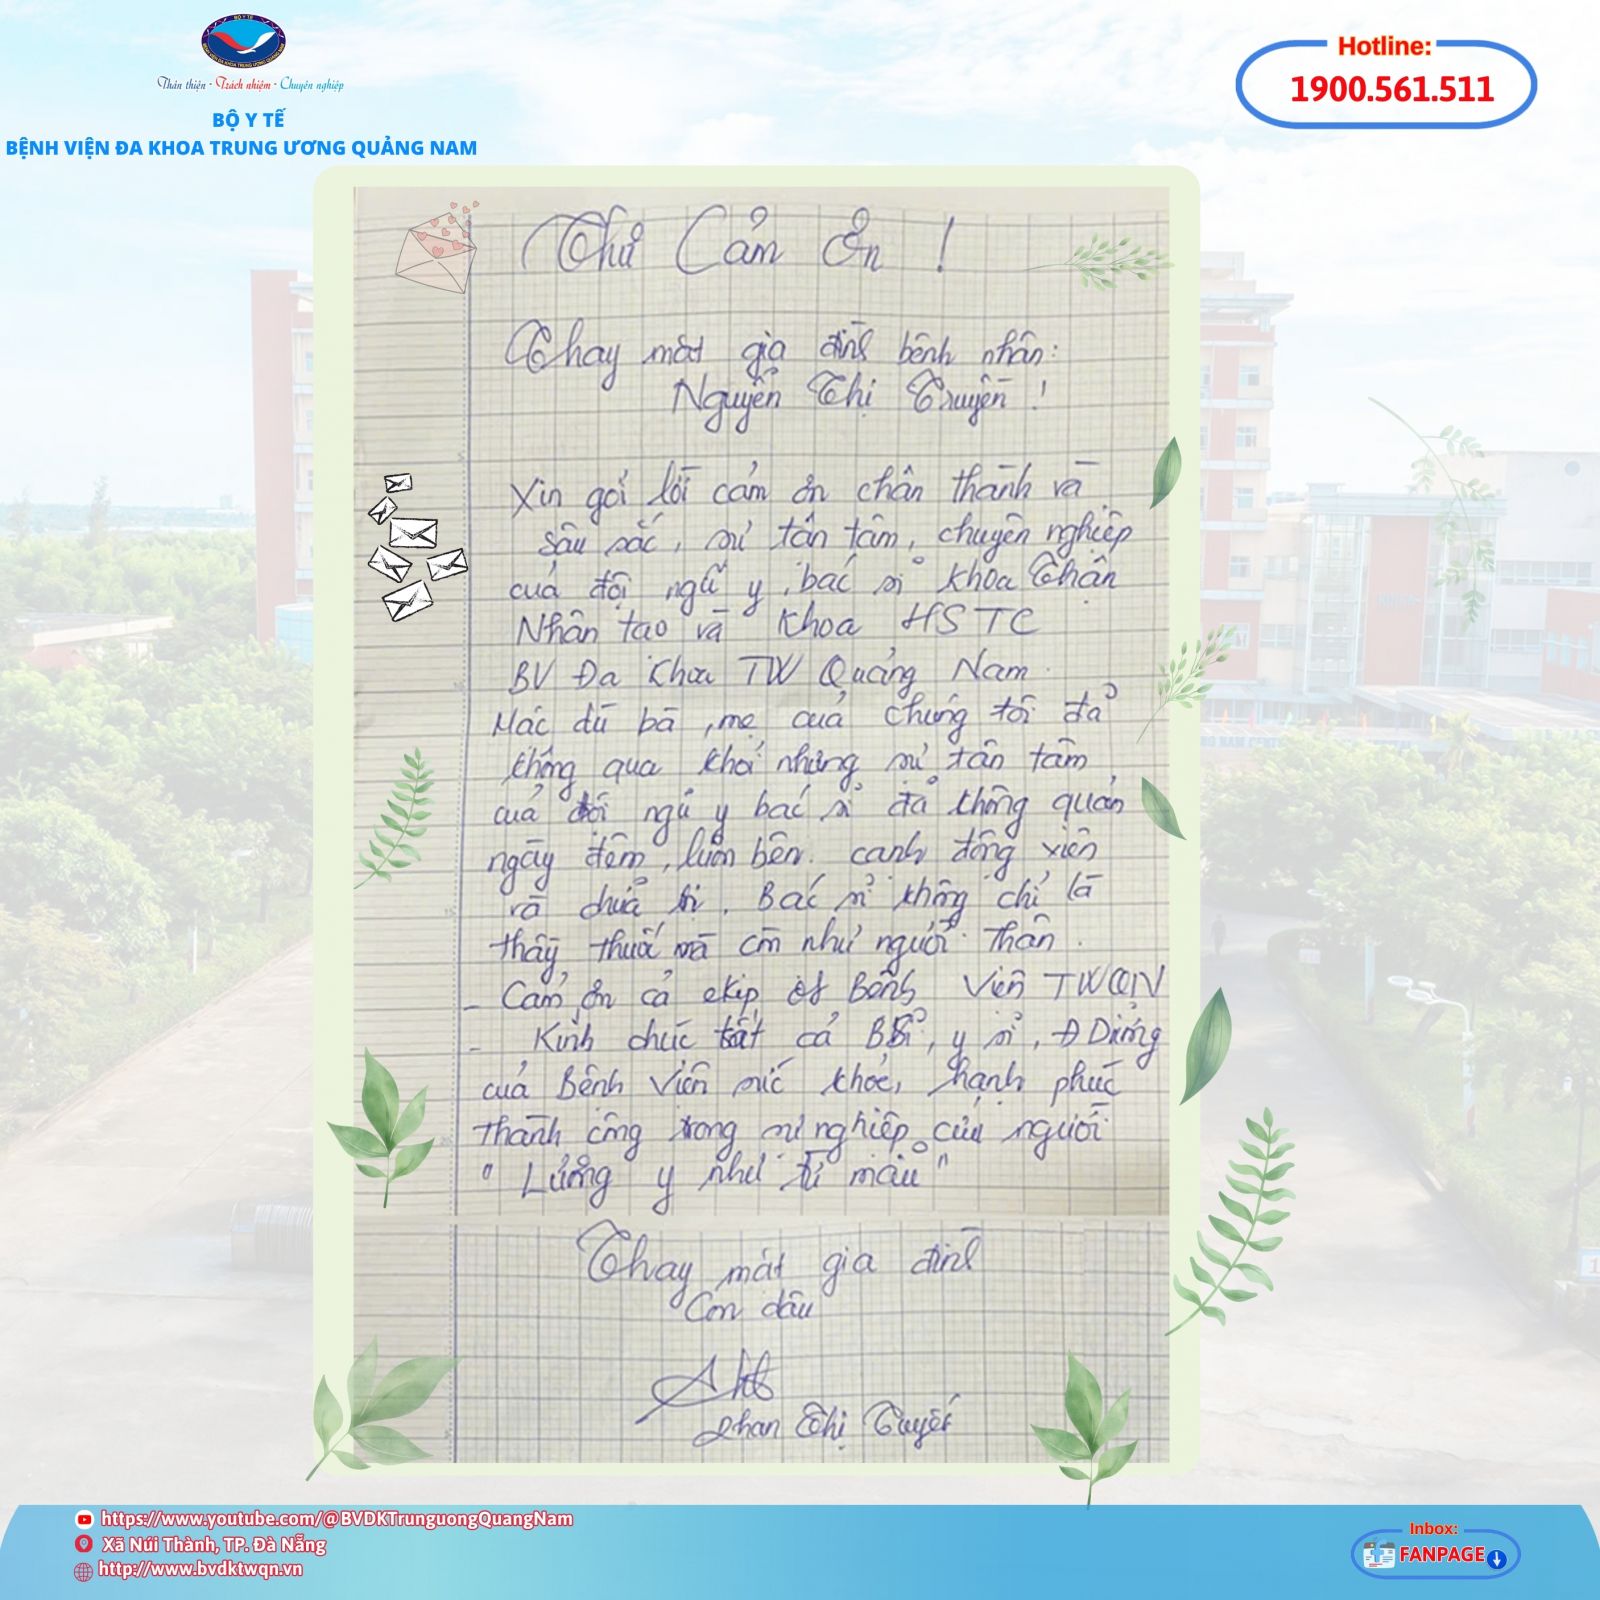 BỘ Y TẾ
BỆNH VIỆN ĐA KHOA TRUNG ƯƠNG QUẢNG NAM
Thân thiện - Trách nhiệm - Chuyên nghiệp
BỘ Y TẾ
BỆNH VIỆN ĐA KHOA TRUNG ƯƠNG QUẢNG NAM
Hotline:
1900.561.511
Thư Cảm Ơn !
Thay mặt gia đình bệnh nhân:
Nguyễn Thị Truyền !
Xin gởi lời cảm ơn chân thành và
sâu sắc, sự tận tâm, chuyên nghiệp
của đội ngũ y, bác sỉ khoa Thận
Nhân tạo và khoa HSTC
BV Đa Khoa TW Quảng Nam.
Mặc dù bà, mẹ của chúng tôi đả
không qua khỏi nhưng sự tận tâm
của đội ngủ y bác sỉ đả không quản
ngày đêm, luôn bên cạnh động viên
và chửa trị. Bác sỉ không chỉ là
thầy thuốc mà còn như người thân.
- Cảm ơn cả ekip ở Bệnh Viện TWQN
- Kính chúc tất cả BSỉ, y sỉ, Đ Dưỡng
của Bệnh Viện sức khỏe, hạnh phúc
thành công trong sự nghiệp của người
" Lương y như từ mẫu "
Thay mặt gia đình
Con dâu
Phan Thị Tuyết
https://www.youtube.com/@BVDKTrunguongQuangNam
Xã Núi Thành, TP. Đà Nẵng
http://www.bvdktwqn.vn
Inbox:
FANPAGE